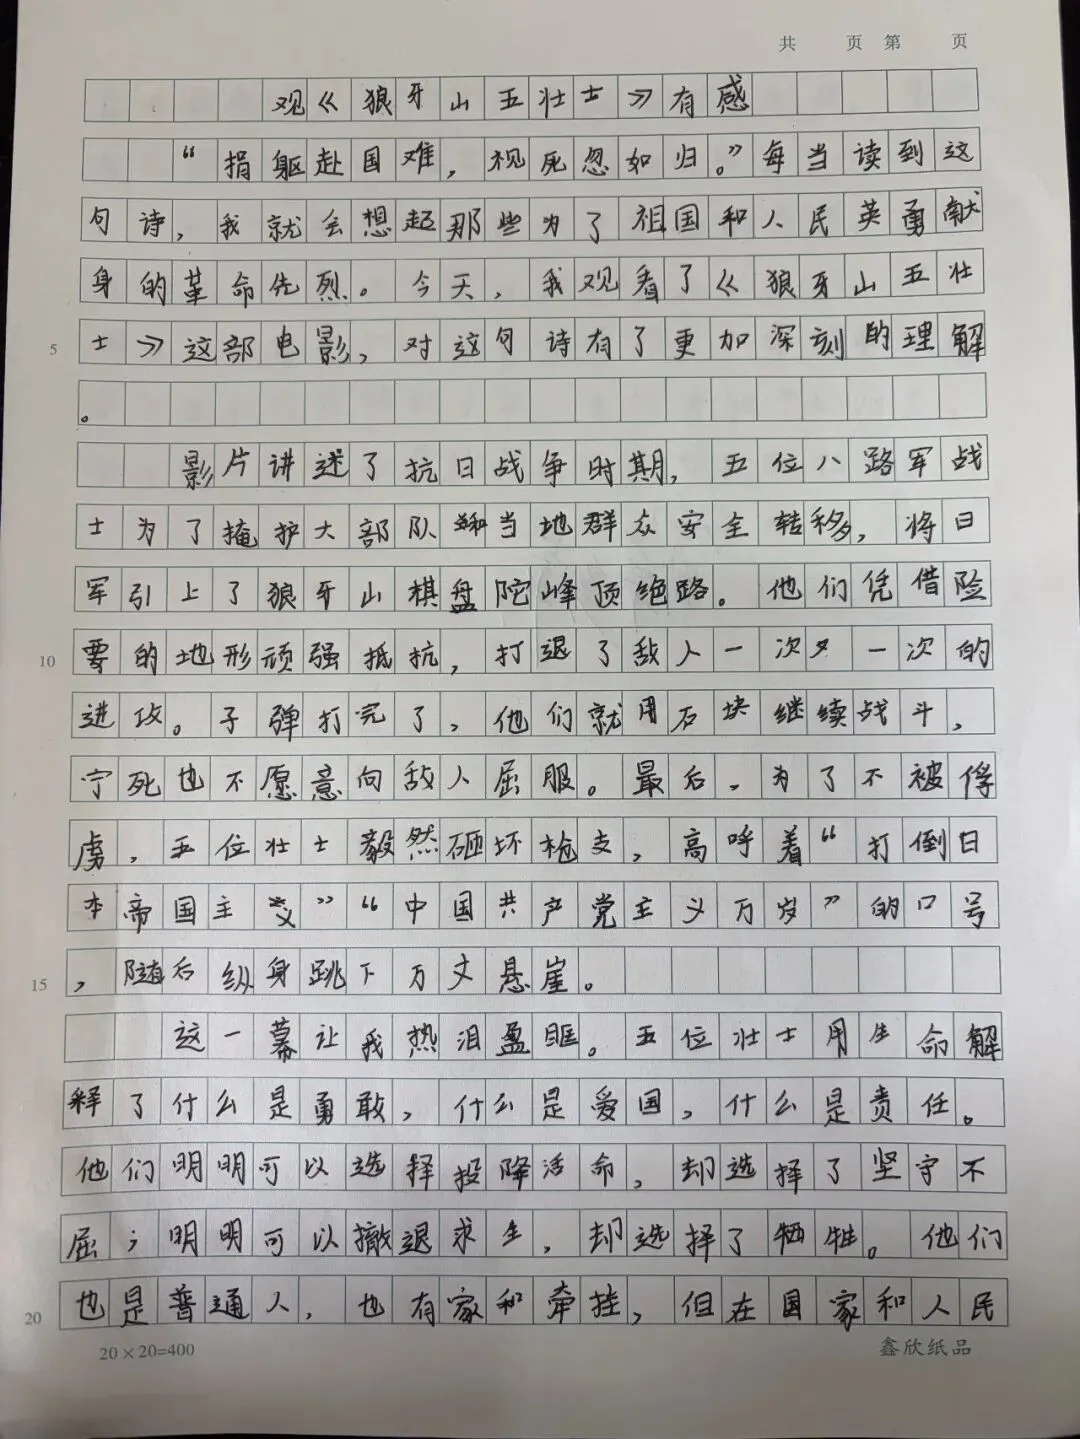 共 页 第 页
观《狼牙山五壮士》有感
“捐躯赴国难，视死忽如归。”每当读到这
句诗，我就会想起那些为了祖国和人民英勇献
身的革命先烈。今天，我观看了《狼牙山五壮
5 士》这部电影，对这句诗有了更加深刻的理解
。
影片讲述了抗日战争时期，五位八路军战
士为了掩护大部队和当地群众安全转移，将日
军引上了狼牙山棋盘陀峰顶绝路。他们凭借险
10 要的地形顽强抵抗，打退了敌人一次又一次的
进攻。子弹打完了，他们就用石块继续战斗，
宁死也不愿意向敌人屈服。最后，为了不被俘
虏，五位壮士毅然砸坏枪支，高呼着“打倒日
本帝国主义”“中国共产党主义万岁”的口号
15 ，随后纵身跳下万丈悬崖。
这一幕让我热泪盈眶。五位壮士用生命解
释了什么是勇敢，什么是爱国，什么是责任。
他们明明可以选择投降活命，却选择了坚守不
屈；明明可以撤退求生，却选择了牺牲。他们
20 也是普通人，也有家和牵挂，但在国家和人民
20×20=400 鑫欣纸品